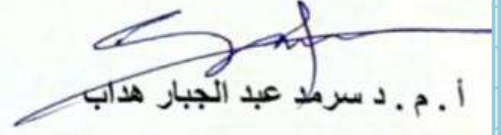 أ . م . د سرمد عبد الجبار هداب